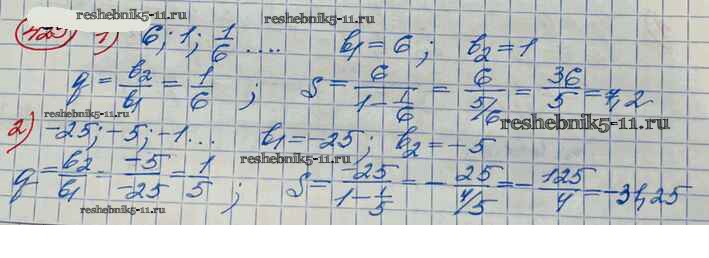 reshebnik5-11.ru
1) 6; 1; 1/6 .... b₁ = 6; b₂ = 1
q = b₂/b₁ = 1/6; S = 6/(1 - 1/6) = 6/(5/6) = 36/5 = 7,2
reshebnik5-11.ru
reshebnik5-11.ru
2) -25; -5; -1... b₁ = -25; b₂ = -5
reshebnik5-11.ru
q = b₂/b₁ = -5/-25 = 1/5; S = -25/(1 - 1/5) = - 25/(4/5) = - 125/4 = -31,25
reshebnik5-11.ru
reshebnik5-11.ru